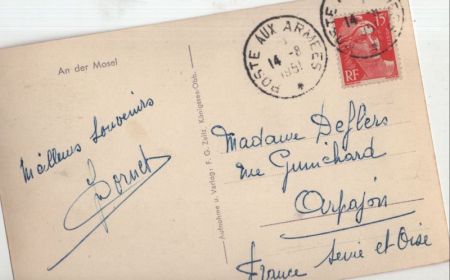 An der Mosel
Meilleurs Souvenirs
Aufnahme u. Verlag: F. G. Zeitz, Königssee-Obb.
POSTE AUX ARMEES
14 -8
1951
15F
RF
Madame Deflers
rue Guinchard
Arpajon
France Seine et Oise